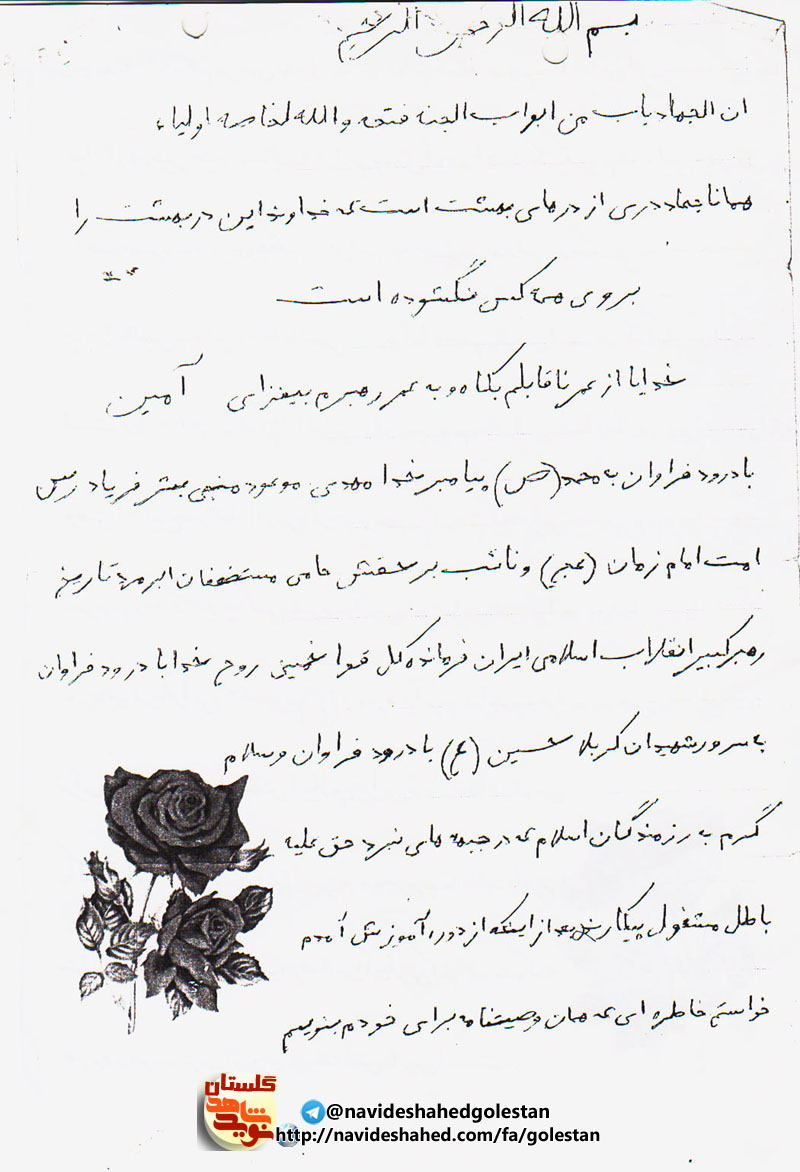 بسم الله الرحمن الرحیم
ان الجهاد باب من ابواب الجنه فتحه والله لخاصه اولیاء
همانا جهاد دری از درهای بهشت است که خداوند این در بهشت را
بروی همه کس نگشوده است
خدایا از عمر ناقابلم بکاه و به عمر رهبرم بیفزای آمین
با درود فراوان به محمد (ص) پیامبر خدا مهدی موعود منجی بشر فریاد رس
امت امام زمان (عج) و نائب بر حقش حامی مستضعفان ابرمرد تاریخ
رهبر کبیر انقلاب اسلامی ایران فرمانده کل قوا خمینی روح خدا با درود فراوان
به سرور شهیدان کربلا حسین (ع) با درود فراوان و سلام
گرم به رزمندگان اسلام که در جبهه های نبرد حق علیه
باطل مشغول پیکارند بعد از اینکه از دوره آموزش آمدم
خواستم خاطره ای که همان وصیتنامه برای خودم بنویسم
گلستان
نوید شاهد
@navideshahedgolestan
http://navideshahed.com/fa/golestan